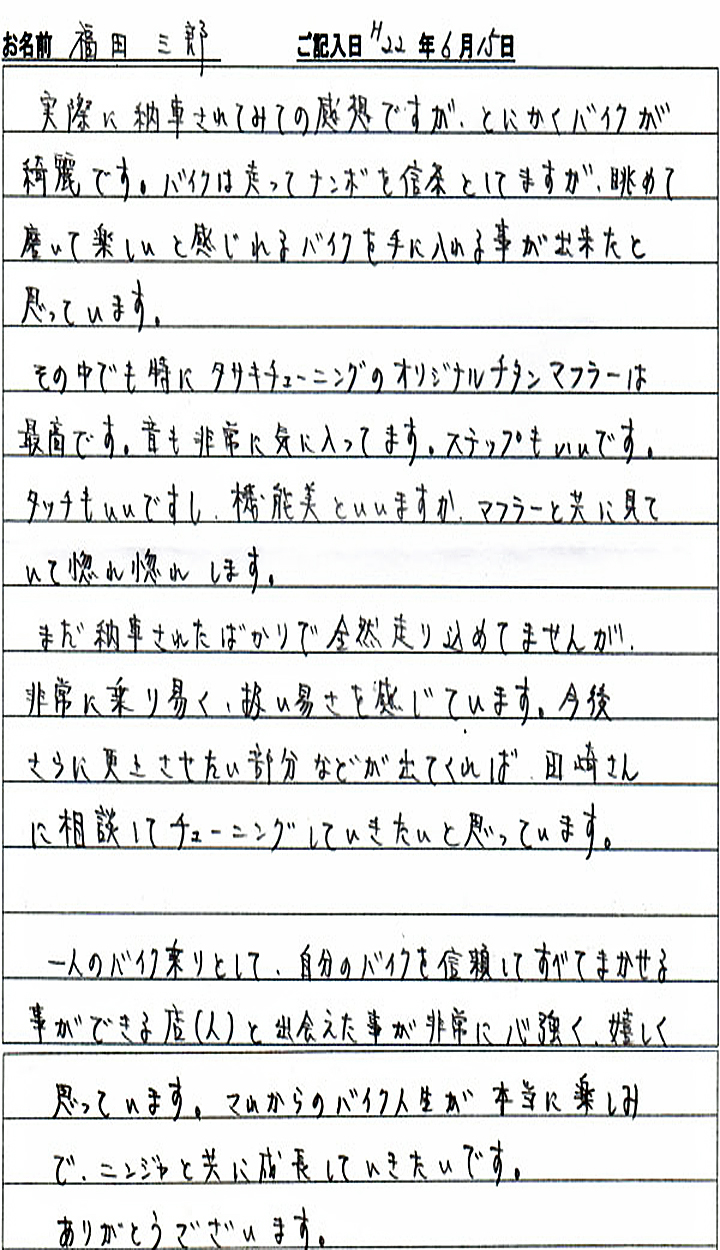 お名前 福田三郎 ご記入日 H22年6月15日
実際に納車されてみての感想ですが、とにかくバイクが
綺麗です。バイクは走ってナンボを信条としてますが、眺めて
磨いて楽しいと感じれるバイクを手に入れる事が出来たと
思っています。
その中でも特にタサキチューニングのオリジナルチタンマフラーは
最高です。音も非常に気に入ってます。ステップもいいです。
タッチもいいですし、機能美といいますか、マフラーと共に見て
いて惚れ惚れします。
まだ納車されたばかりで全然走り込めてませんが、
非常に乗り易く、扱い易さを感じています。今後
さらに更 させたい部分などが出てくれば、田崎さん
に相談してチューニングしていきたいと思っています。
一人のバイク乗りとして、自分のバイクを信頼してすべてまかせる
事ができる店(人)と出会えた事が非常に心強く、嬉しく
思っています。これからのバイク人生が本当に楽しみ
で、ニンジャと共に成長していきたいです。
ありがとうございます。